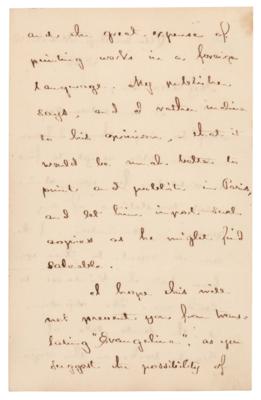 and the great expense of
printing works in a foreign
language. My publisher
says, and I rather incline
to his opinion, that it
would be much better to
print and publish in Paris,
and let him import such
copies as he might find
saleable.
I hope this will
not prevent you from trans-
lating "Evangeline", as you
suggest the possibility of